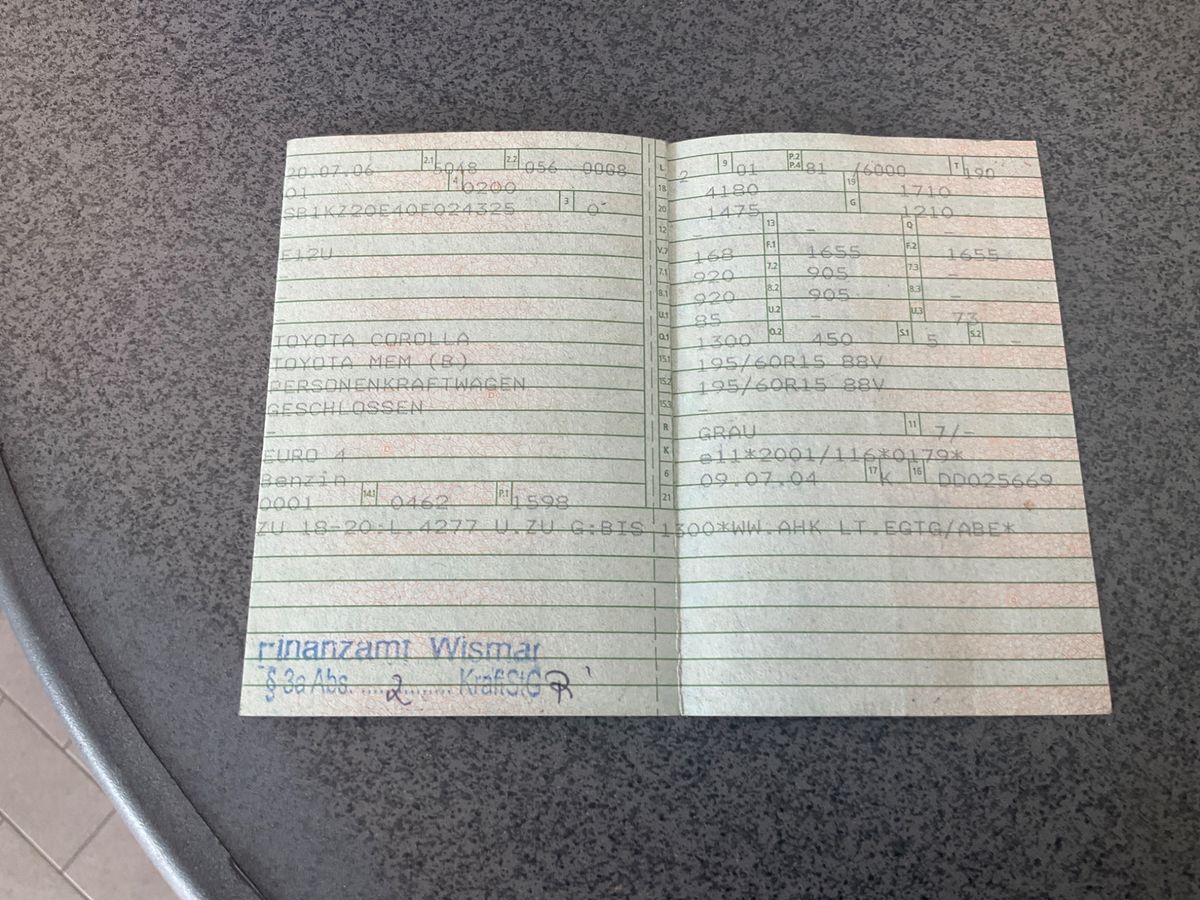 20.07.06 2.1 5048 2.2 056 0008
01 4 0200
SB1KZ20E40E024325 3 0
E12U
TOYOTA COROLLA
TOYOTA MEM (B)
PERSONENKRAFTWAGEN
GESCHLOSSEN
-
EURO 4
Benzin
0001 14.1 0462 P.1 1598
L 2 9 01 P.2 P.4 81 /6000 T 190
18 4180 19 1710
20 1475 G 1210
12 - 13 - Q -
V.7 168 F.1 1655 F.2 1655
7.1 920 7.2 905 7.3 -
8.1 920 8.2 905 8.3 -
U.1 85 U.2 - U.3 73
O.1 1300 O.2 450 S.1 5 S.2 -
15.1 195/60R15 88V
15.2 195/60R15 88V
15.3 -
R GRAU 11 7/-
K e11*2001/116*0179*
6 09.07.04 17 K 16 DD025669
21
ZU 18-20:L.4277 U.ZU G:BIS 1300*WW.AHK LT.EGTG/ABE*
Finanzamt Wismar
§ 3a Abs. ....2........ KraftStG